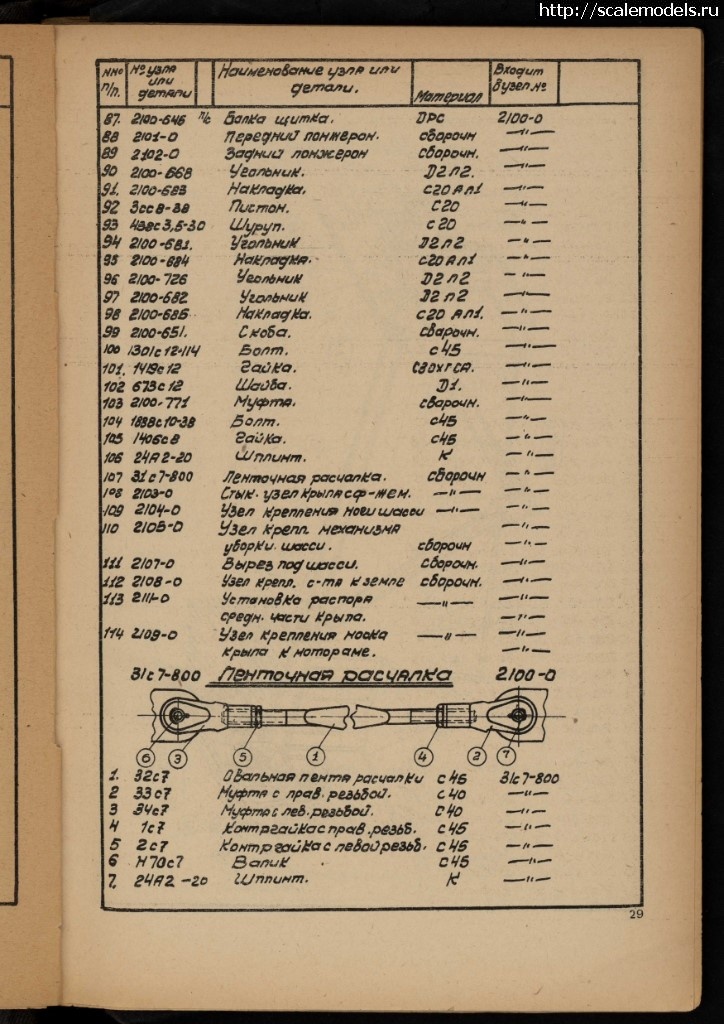 http://scalemodels.ru
№№ п/п. № узла или детали Наименование узла или детали. Материал Входит в узел №
87. 2100-646 п/с Балка щитка. ДРС 2100-0
88 2101-0 Передний лонжерон. сборочн. —"—
89 2102-0 Задний лонжерон сборочн. —"—
90 2100-668 Угольник. Д2п2. —"—
91. 2100-683 Накладка. с20Ап1 —"—
92 3сс8-38 Пистон. с20 —"—
93 438с3,5-30 Шуруп. с20 —"—
94 2100-681. Угольник Д2п2 —"—
95 2100-684 Накладка. с20Ап1 —"—
96 2100-726 Угольник Д2п2 —"—
97 2100-682 Угольник Д2п2 —"—
98 2100-685 Накладка. с20 Ап1. —"—
99 2100-651. Скоба. сварочн. —"—
100 1301с12-114 Болт. с45 —"—
101. 1419с12 Гайка. с30хгсА. —"—
102 673с12 Шайба. Д1. —"—
103 2100-771 Муфта. сварочн. —"—
104 1838с10-38 Болт. с45 —"—
105 1406с8 Гайка. с45 —"—
106 24А2-20 Шплинт. К —"—
107 31с7-800 Ленточная расчалка. сборочн —"—
108 2103-0 Стык. узел крыла с ф-жем. —"— —"—
109 2104-0 Узел крепления ноги шасси —"— —"—
110 2105-0 Узел крепл. механизма —"—
уборки шасси. сборочн —"—
111 2107-0 Вырез под шасси. сборочн. —"—
112 2108-0 Узел крепл. с-та к земле сборочн. —"—
113 2111-0 Установка распора —"— —"—
средн. части крыла. —"—
114 2109-0 Узел крепления носка —"— —"—
крыла к мотораме. —"—
31с7-800 Ленточная расчалка 2100-0
6 3 5 1 4 2 7
1. 32с7 Овальная лента расчалки с45 31с7-800
2 33с7 Муфта с прав. резьбой. с40 —"—
3 34с7 Муфта с лев. резьбой. с40 —"—
4 1с7 Контргайка с прав. резьб. с45 —"—
5 2с7 Контргайка с левой резьб. с45 —"—
6 Н70с7 Валик с45 —"—
7. 24А2-20 Шплинт. К —"—
29